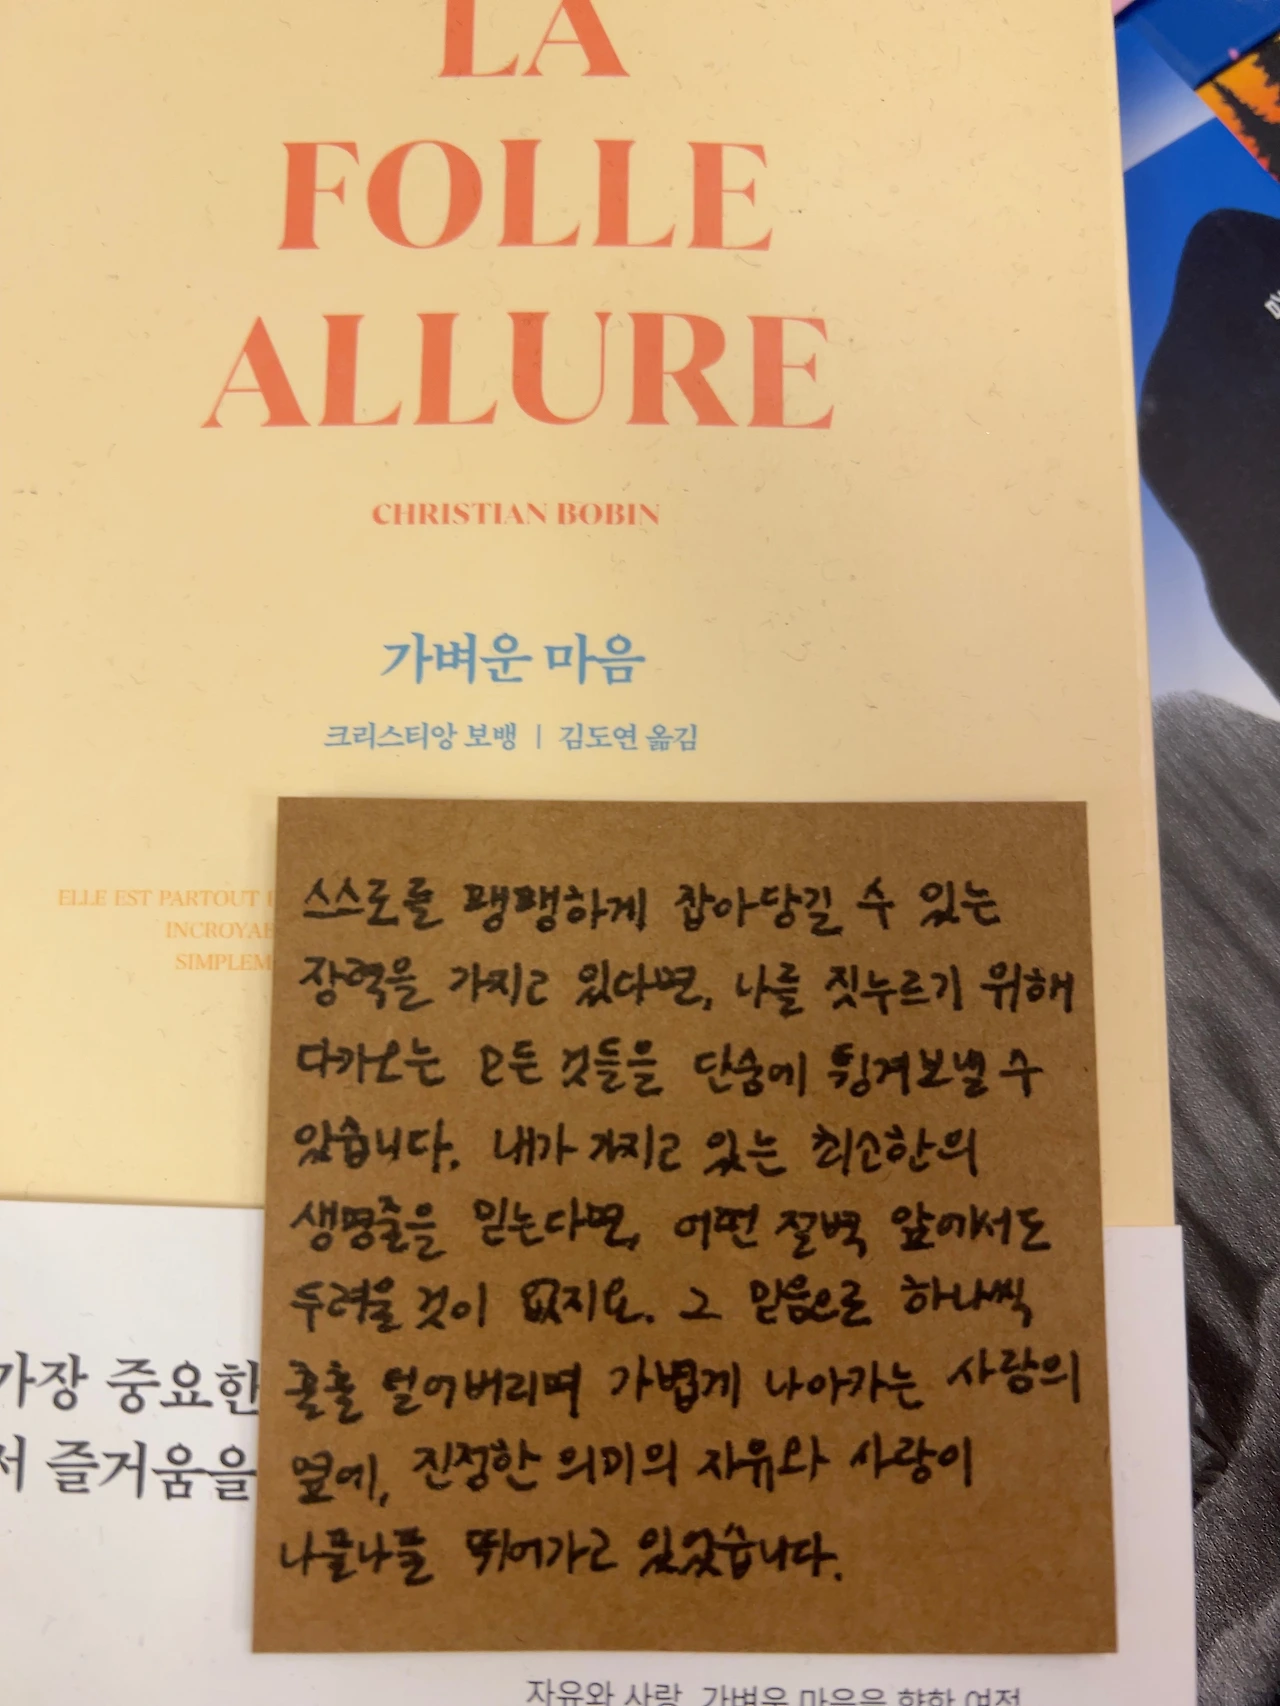 LA
FOLLE
ALLURE
CHRISTIAN BOBIN
가벼운 마음
크리스티앙 보뱅 | 김도연 옮김
ELLE EST PARTOUT
INCROYAB
SIMPLEM
스스로를 팽팽하게 잡아당길 수 있는
장력을 가지고 있다면, 나를 짓누르기 위해
다가오는 모든 것들을 단숨에 튕겨보낼 수
있습니다. 내가 가지고 있는 최소한의
생명줄을 믿는다면, 어떤 절벽 앞에서도
두려울 것이 없지요. 그 믿음으로 하나씩
훌훌 털어버리며 가볍게 나아가는 사람의
옆에, 진정한 의미의 자유와 사랑이
나풀나풀 뛰어가고 있었습니다.
가장 중요한
서 즐거움을
자유와 사랑, 가벼운 마음을 향한 여정